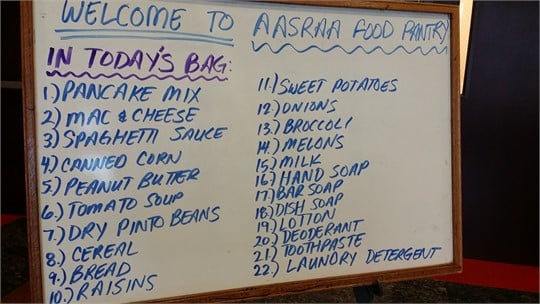 WELCOME TO AASRAA FOOD PANTRY
IN TODAY'S BAG:
1.) PANCAKE MIX
2) MAC & CHEESE
3) SPAGHETTI SAUCE
4.) CANNED CORN
5.) PEANUT BUTTER
6.) TOMATO SOUP
7.) DRY PINTO BEANS
8.) CEREAL
9.) BREAD
10.) RAISINS
11.) SWEET POTATOES
12.) ONIONS
13.) BROCCOLI
14.) MELONS
15.) MILK
16.) HAND SOAP
17.) BAR SOAP
18.) DISH SOAP
19.) LOTION
20.) DEODERANT
21.) TOOTHPASTE
22.) LAUNDRY DETERGENT